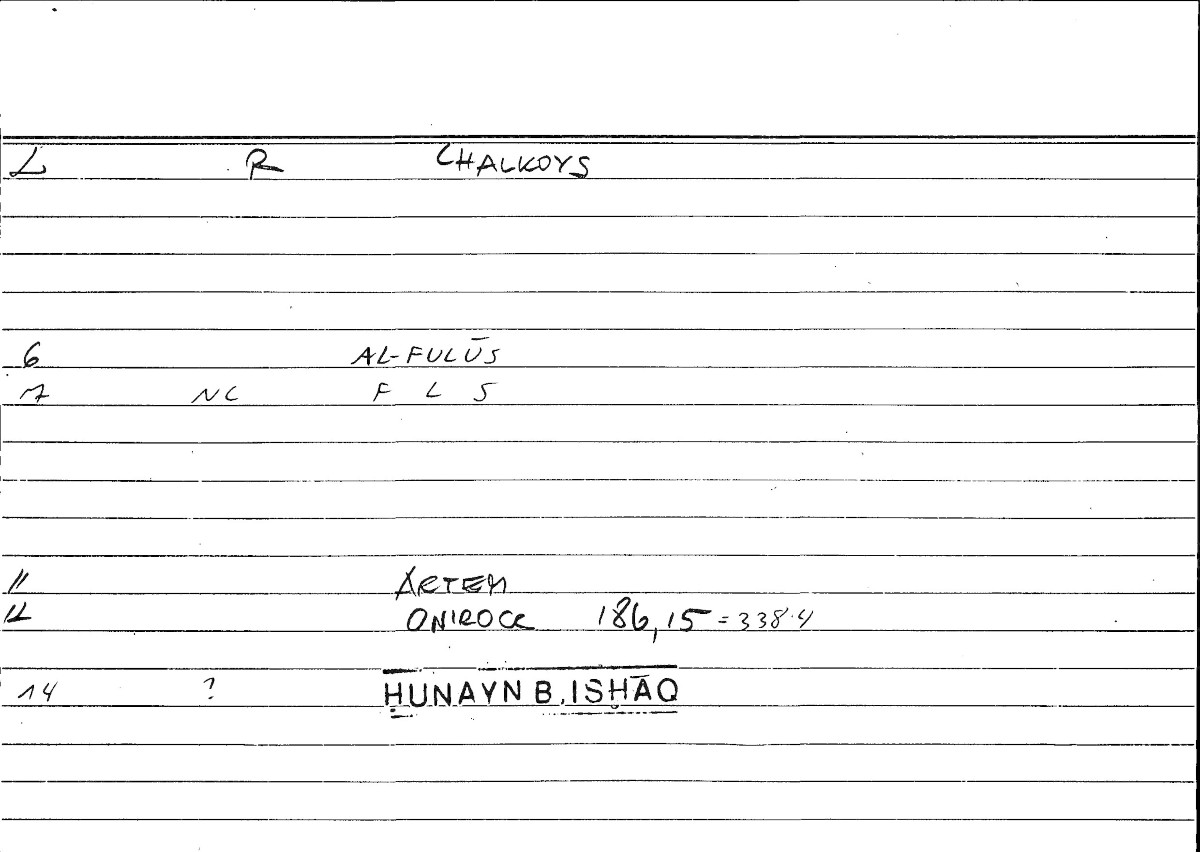 L R CHALKOYS
6 AL-FULŪS
7 NC F L S
11 ARTEM
12 ONIROCR 186,15 = 338.4
14 ? ḤUNAYN B. ISḤĀQ